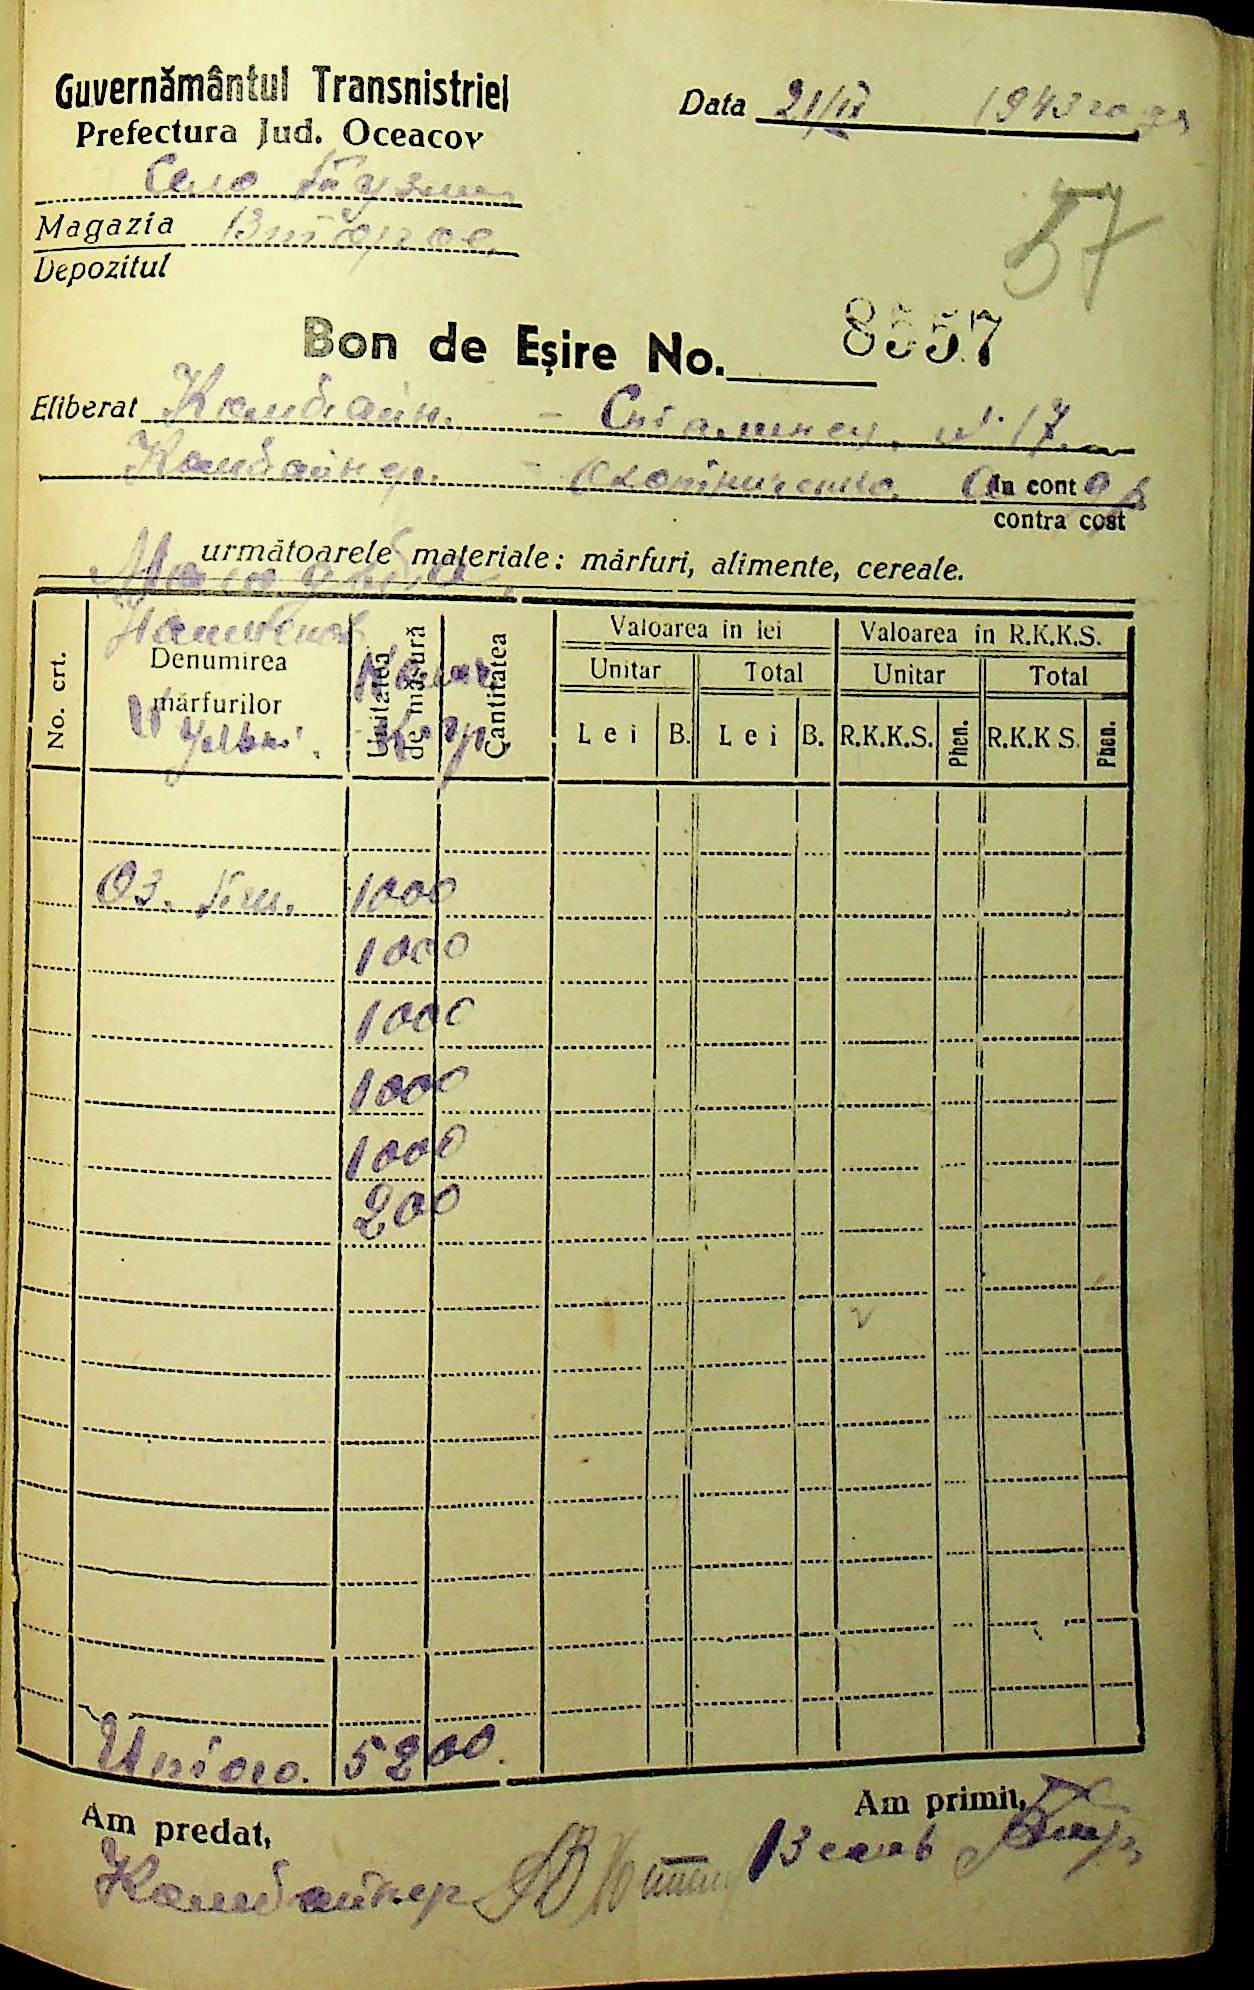 Guvernământul Transnistriei
Prefectura Jud. Oceacov
Data 21/II 1943 года
Село
Magazia Второе
Depozitul
57
Bon de Eşire No. 8557
Eliberat Комбайн. – Сталинец. №17.
Комбайнер. – In cont
contra cost
următoarele materiale: mărfuri, alimente, cereale.
No. crt.
Denumirea mărfurilor
Unitatea de măsură
Cantitatea
Valoarea in lei
Valoarea in R.K.K.S.
Unitar Total Unitar Total
Lei B. Lei B. R.K.K.S. Phen. R.K.K S. Phen.
Оз. пш. 1000
1000
1000
1000
1000
200
Итого. 5200.
Am predat,
Am primit,
Комбайнер
Взяв